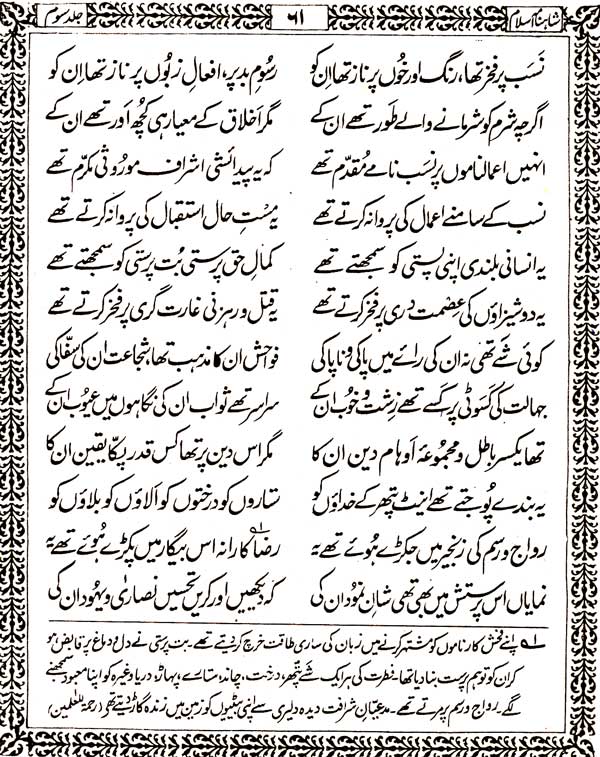 شاہنامہ اسلام ۶۱ جلد سوم
نسب پر فخر تھا، رنگ اور خوں پر ناز تھا ان کو رسوم بد پر، افعال زبوں پر ناز تھا ان کو
اگرچہ شرم کو شرمانے والے طور تھے ان کے مگر اخلاق کے معیار ہی کچھ اور تھے ان کے
انہیں اعمالناموں پر نسب نامے مقدم تھے کہ یہ پیدائشی اشراف موروثی مکرم تھے
نسب کے سامنے اعمال کی پروا نہ کرتے تھے یہ مست حال استقبال کی پروا نہ کرتے تھے
یہ انسانی بلندی اپنی پستی کو سمجھتے تھے کمال حق پرستی بت پرستی کو سمجھتے تھے
یہ دوشیزاؤں کی عصمت دری پر فخر کرتے تھے یہ قتل و رہزنی غارت گری پر فخر کرتے تھے
کوئی شے تھی نہ ان کی رائے میں پاکی و ناپاکی فواحش ان کا مذہب تھا، شجاعت ان کی سفاکی
جہالت کی کسوٹی پر کسے تھے زشت و خوب ان کے سراسر تھے ثواب ان کی نگاہوں میں عیوب ان کے
تھا یکسر باطل و مجموعۂ اوہام دین ان کا مگر اس دین پر تھا کس قدر پکا یقین ان کا
یہ بندے پوجتے تھے اینٹ پتھر کے خداؤں کو ستاروں کو درختوں کو الاؤں کو بلاؤں کو
رواج و رسم کی زنجیر میں جکڑے ہوئے تھے یہ رضا کارانہ اس بیگار میں پکڑے ہوئے تھے یہ ؎۱
نمایاں اس پرستش میں بھی تھی شان نمود ان کی کہ دیکھیں اور کریں تحسیں نصاریٰ و یہود ان کی
؎۱ اپنے فحش کارناموں کو مشتہر کرنے میں زبان کی ساری طاقت خرچ کر دیتے تھے۔ بت پرستی نے دل و دماغ پر قابض ہو
کر ان کو توہم پرست بنا دیا تھا۔ فطرت کی ہر ایک شے پتھر، درخت، چاند، ستارے، پہاڑ، دریا وغیرہ کو اپنا معبود سمجھنے
لگے۔ رواج و رسم پر مرتے تھے۔ مدعیان شرافت دیدہ دلیری سے اپنی بیٹیوں کو زمین میں زندہ گاڑ دیتے تھے (رحمۃ للعلمین)